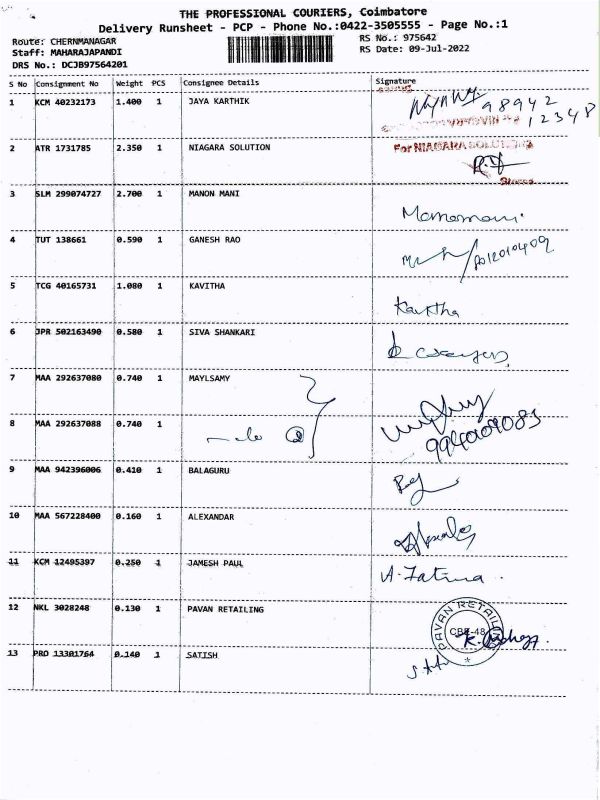 THE PROFESSIONAL COURIERS, Coimbatore
Delivery Runsheet - PCP - Phone No.:0422-3505555 - Page No.:1
Route: CHERNMANAGAR
RS No.: 975642
Staff: MAHARAJAPANDI
RS Date: 09-Jul-2022
DRS No.: DCJB97564201
S No Consignment No Weight PCS Consignee Details Signature
1 KCM 40232173 1.400 1 JAYA KARTHIK
98942
12348
2 ATR 1731785 2.350 1 NIAGARA SOLUTION
For NIAGARA SOLUTIONS
3 SLM 299074727 2.700 1 MANON MANI
4 TUT 138661 0.590 1 GANESH RAO
5 TCG 40165731 1.080 1 KAVITHA
Kavitha
6 JPR 502163490 0.580 1 SIVA SHANKARI
7 MAA 292637080 0.740 1 MAYLSAMY
8 MAA 292637088 0.740 1
9 MAA 942396006 0.410 1 BALAGURU
10 MAA 567228400 0.160 1 ALEXANDAR
11 KCM 12495397 0.250 1 JAMESH PAUL
A. Fatima
12 NKL 3028248 0.130 1 PAVAN RETAILING
PAVAN RETAIL
CBE-48
13 PRO 13301764 0.140 1 SATISH